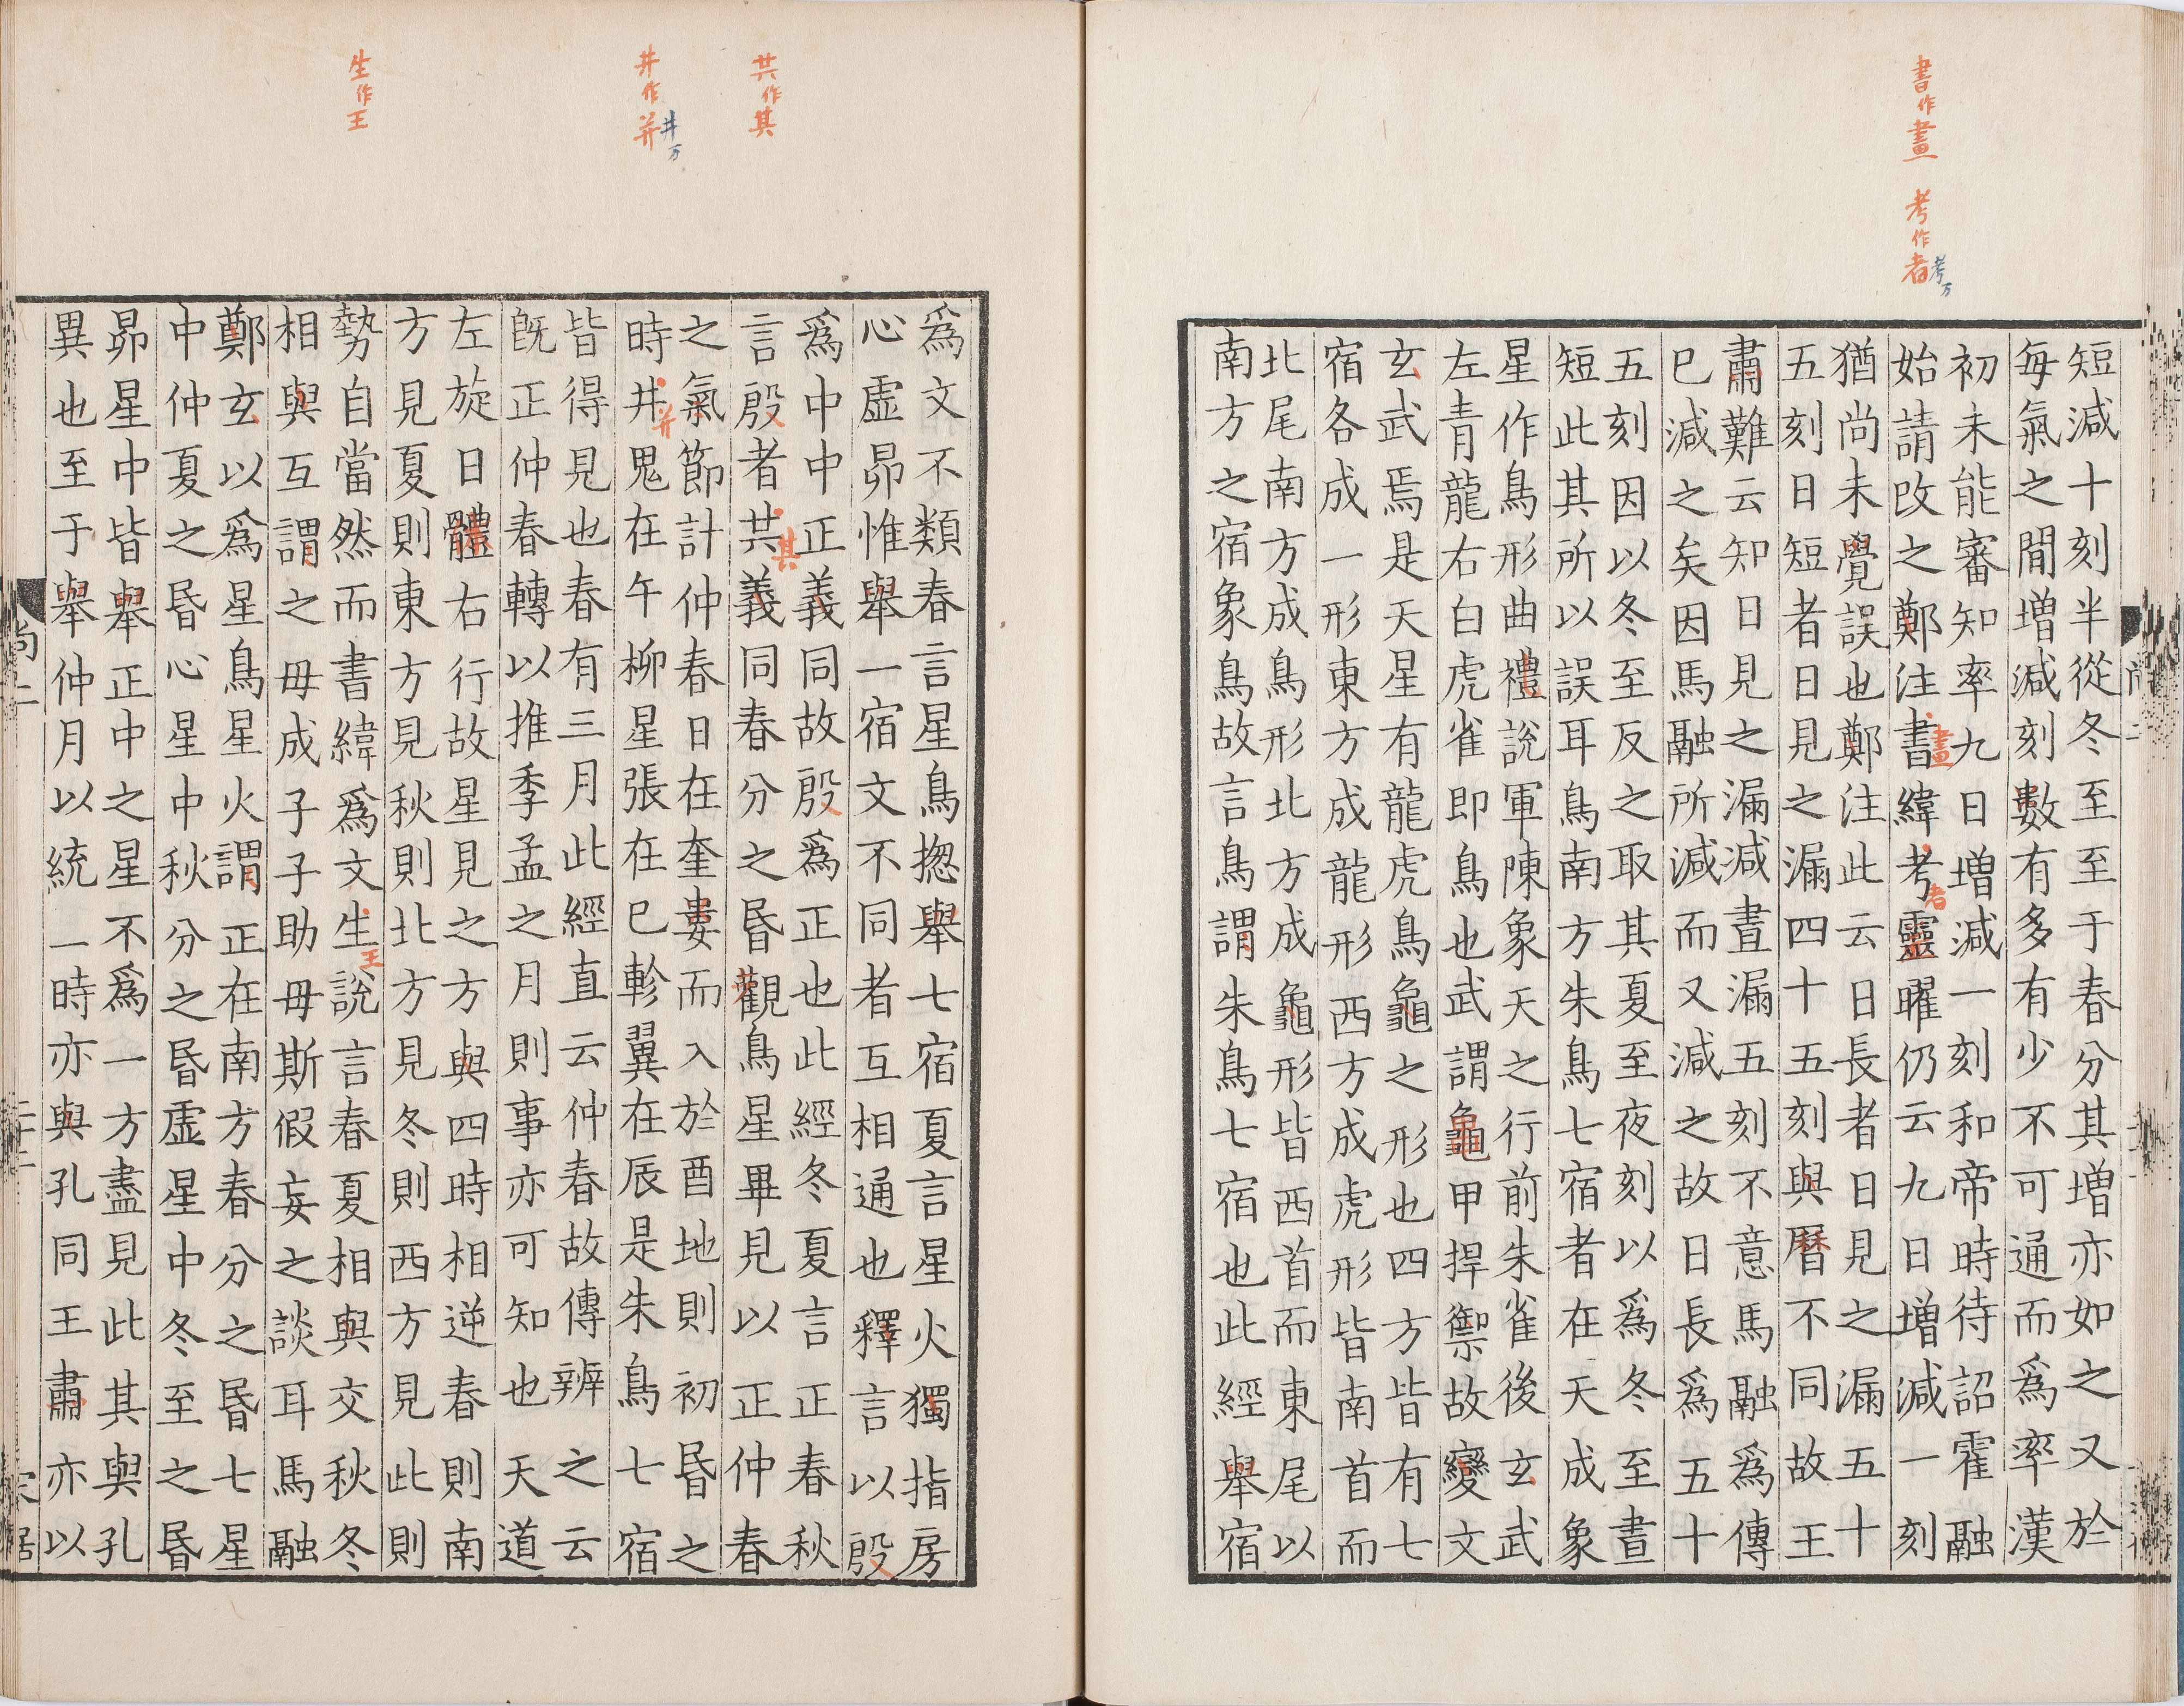 書作畫
考作者
考万
短減十刻半從冬至至于春分其増亦如之又於
每氣之間増減刻數有多有少不可通而爲率漢
初未能審知率九日増減一刻和帝時待詔霍融
始請改之鄭注書緯考靈曜仍云九日増減一刻
畫
者
猶尚未覺誤也鄭注此云日長者日見之漏五十
五刻日短者日見之漏四十五刻與曆不同故王
肅難云知日見之漏減晝漏五刻不意馬融爲傳
巳減之矣因馬融所減而又減之故日長爲五十
五刻因以冬至反之取其夏至夜刻以爲冬至晝
短此其所以誤耳鳥南方朱鳥七宿者在天成象
星作鳥形曲禮說軍陳象天之行前朱雀後玄武
左青龍右白虎雀即鳥也武謂龜甲捍禦故變文
玄武焉是天星有龍虎鳥龜之形也四方皆有七
宿各成一形東方成龍形西方成虎形皆南首而
北尾南方成鳥形北方成龜形皆西首而東尾以
南方之宿象鳥故言鳥謂朱鳥七宿也此經舉宿
共作其
井作并
井万
生作王
爲文不類春言星鳥揔舉七宿夏言星火獨指房
心虛昴惟舉一宿文不同者互相通也釋言以殷
爲中中正義同故殷爲正也此經冬夏言正春秋
言殷者共義同春分之昏觀鳥星畢見以正仲春
其
之氣節計仲春日在奎婁而入於酉地則初昏之
時井鬼在午柳星張在巳軫翼在辰是朱鳥七宿
并
皆得見也春有三月此經直云仲春故傳辨之云
旣正仲春轉以推季孟之月則事亦可知也天道
左旋日體右行故星見之方與四時相逆春則南
方見夏則東方見秋則北方見冬則西方見此則
勢自當然而書緯爲文生說言春夏相與交秋冬
王
相與互謂之毋成子子助毋斯假妄之談耳馬融
鄭玄以爲星鳥星火謂正在南方春分之昏七星
中仲夏之昏心星中秋分之昏虛星中冬至之昏
昴星中皆舉正中之星不爲一方盡見此其與孔
異也至于舉仲月以統一時亦與孔同王肅亦以
尚二